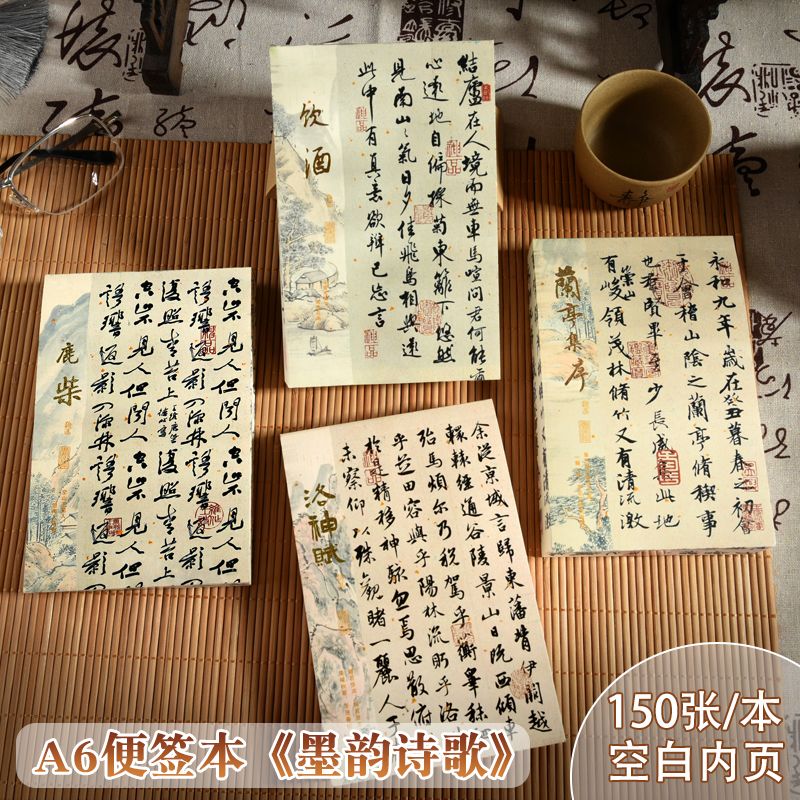 饮酒
結廬在人境而無車馬喧問君何能爾
心遠地自偏採菊東籬下悠然
見南山山氣日夕佳飛鳥相與還
此中有真意欲辯已忘言
鹿柴
空山不見人但聞人
語響返景入深林
復照青苔上
空山不見人但聞人
語響返景入深林
復照青苔上
空山不見人但
語響返景
蘭亭集序
永和九年歲在癸丑暮春之初會
于會稽山陰之蘭亭脩稧事
也羣賢畢至少長咸集此地
有崇山峻領茂林脩竹又有清流激
洛神賦
余從京域言歸東藩背伊闕越
轘轅經通谷陵景山日既西傾車
殆馬煩尔乃税駕乎蘅皋秣
乎芝田容與乎陽林流眄乎洛
於是精移神駭忽焉思散俯
未察仰以殊觀睹一麗人于
A6便签本《墨韵诗歌》
150张/本
空白内页